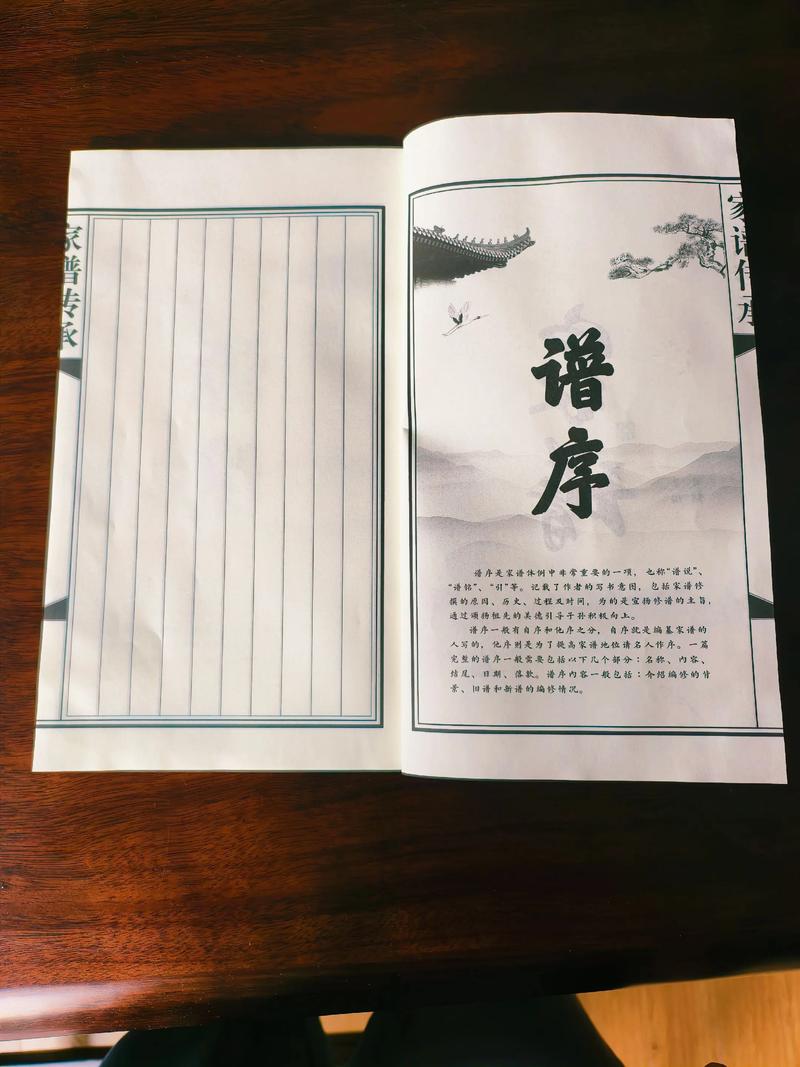 家谱传承
家谱传承
谱序
谱序是家谱体例中非常重要的一项，也称“谱说”、
“谱铭”、“引”等。记载了作者的写书意图，包括家谱修
撰的原因、历史、过程及时间，为的是宣扬修谱的主旨，
通过颂扬祖先的美德引导子孙积极向上。
谱序一般有自序和他序之分，自序就是编纂家谱的
人写的，他序则是为了提高家谱地位请名人作序。一篇
完整的谱序一般需要包括以下几个部分：名称、内容、
结尾、日期、落款。谱序内容一般包括：介绍编修的背
景、旧谱和新谱的编修情况。